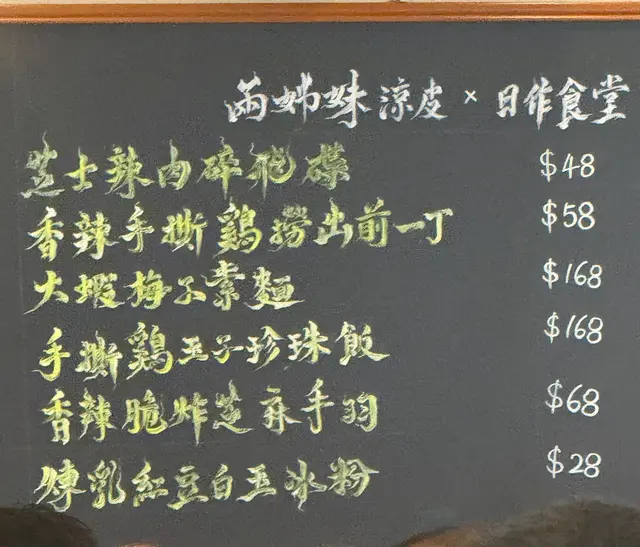 両姊妹涼皮 × 日作食堂
芝士辣肉碎 $48
香辣手撕鷄撈出前一丁 $58
大蝦梅子素麵 $168
手撕鷄玉子珍珠飯 $168
香辣脆炸芝麻手羽 $68
煉乳紅豆白玉冰粉 $28